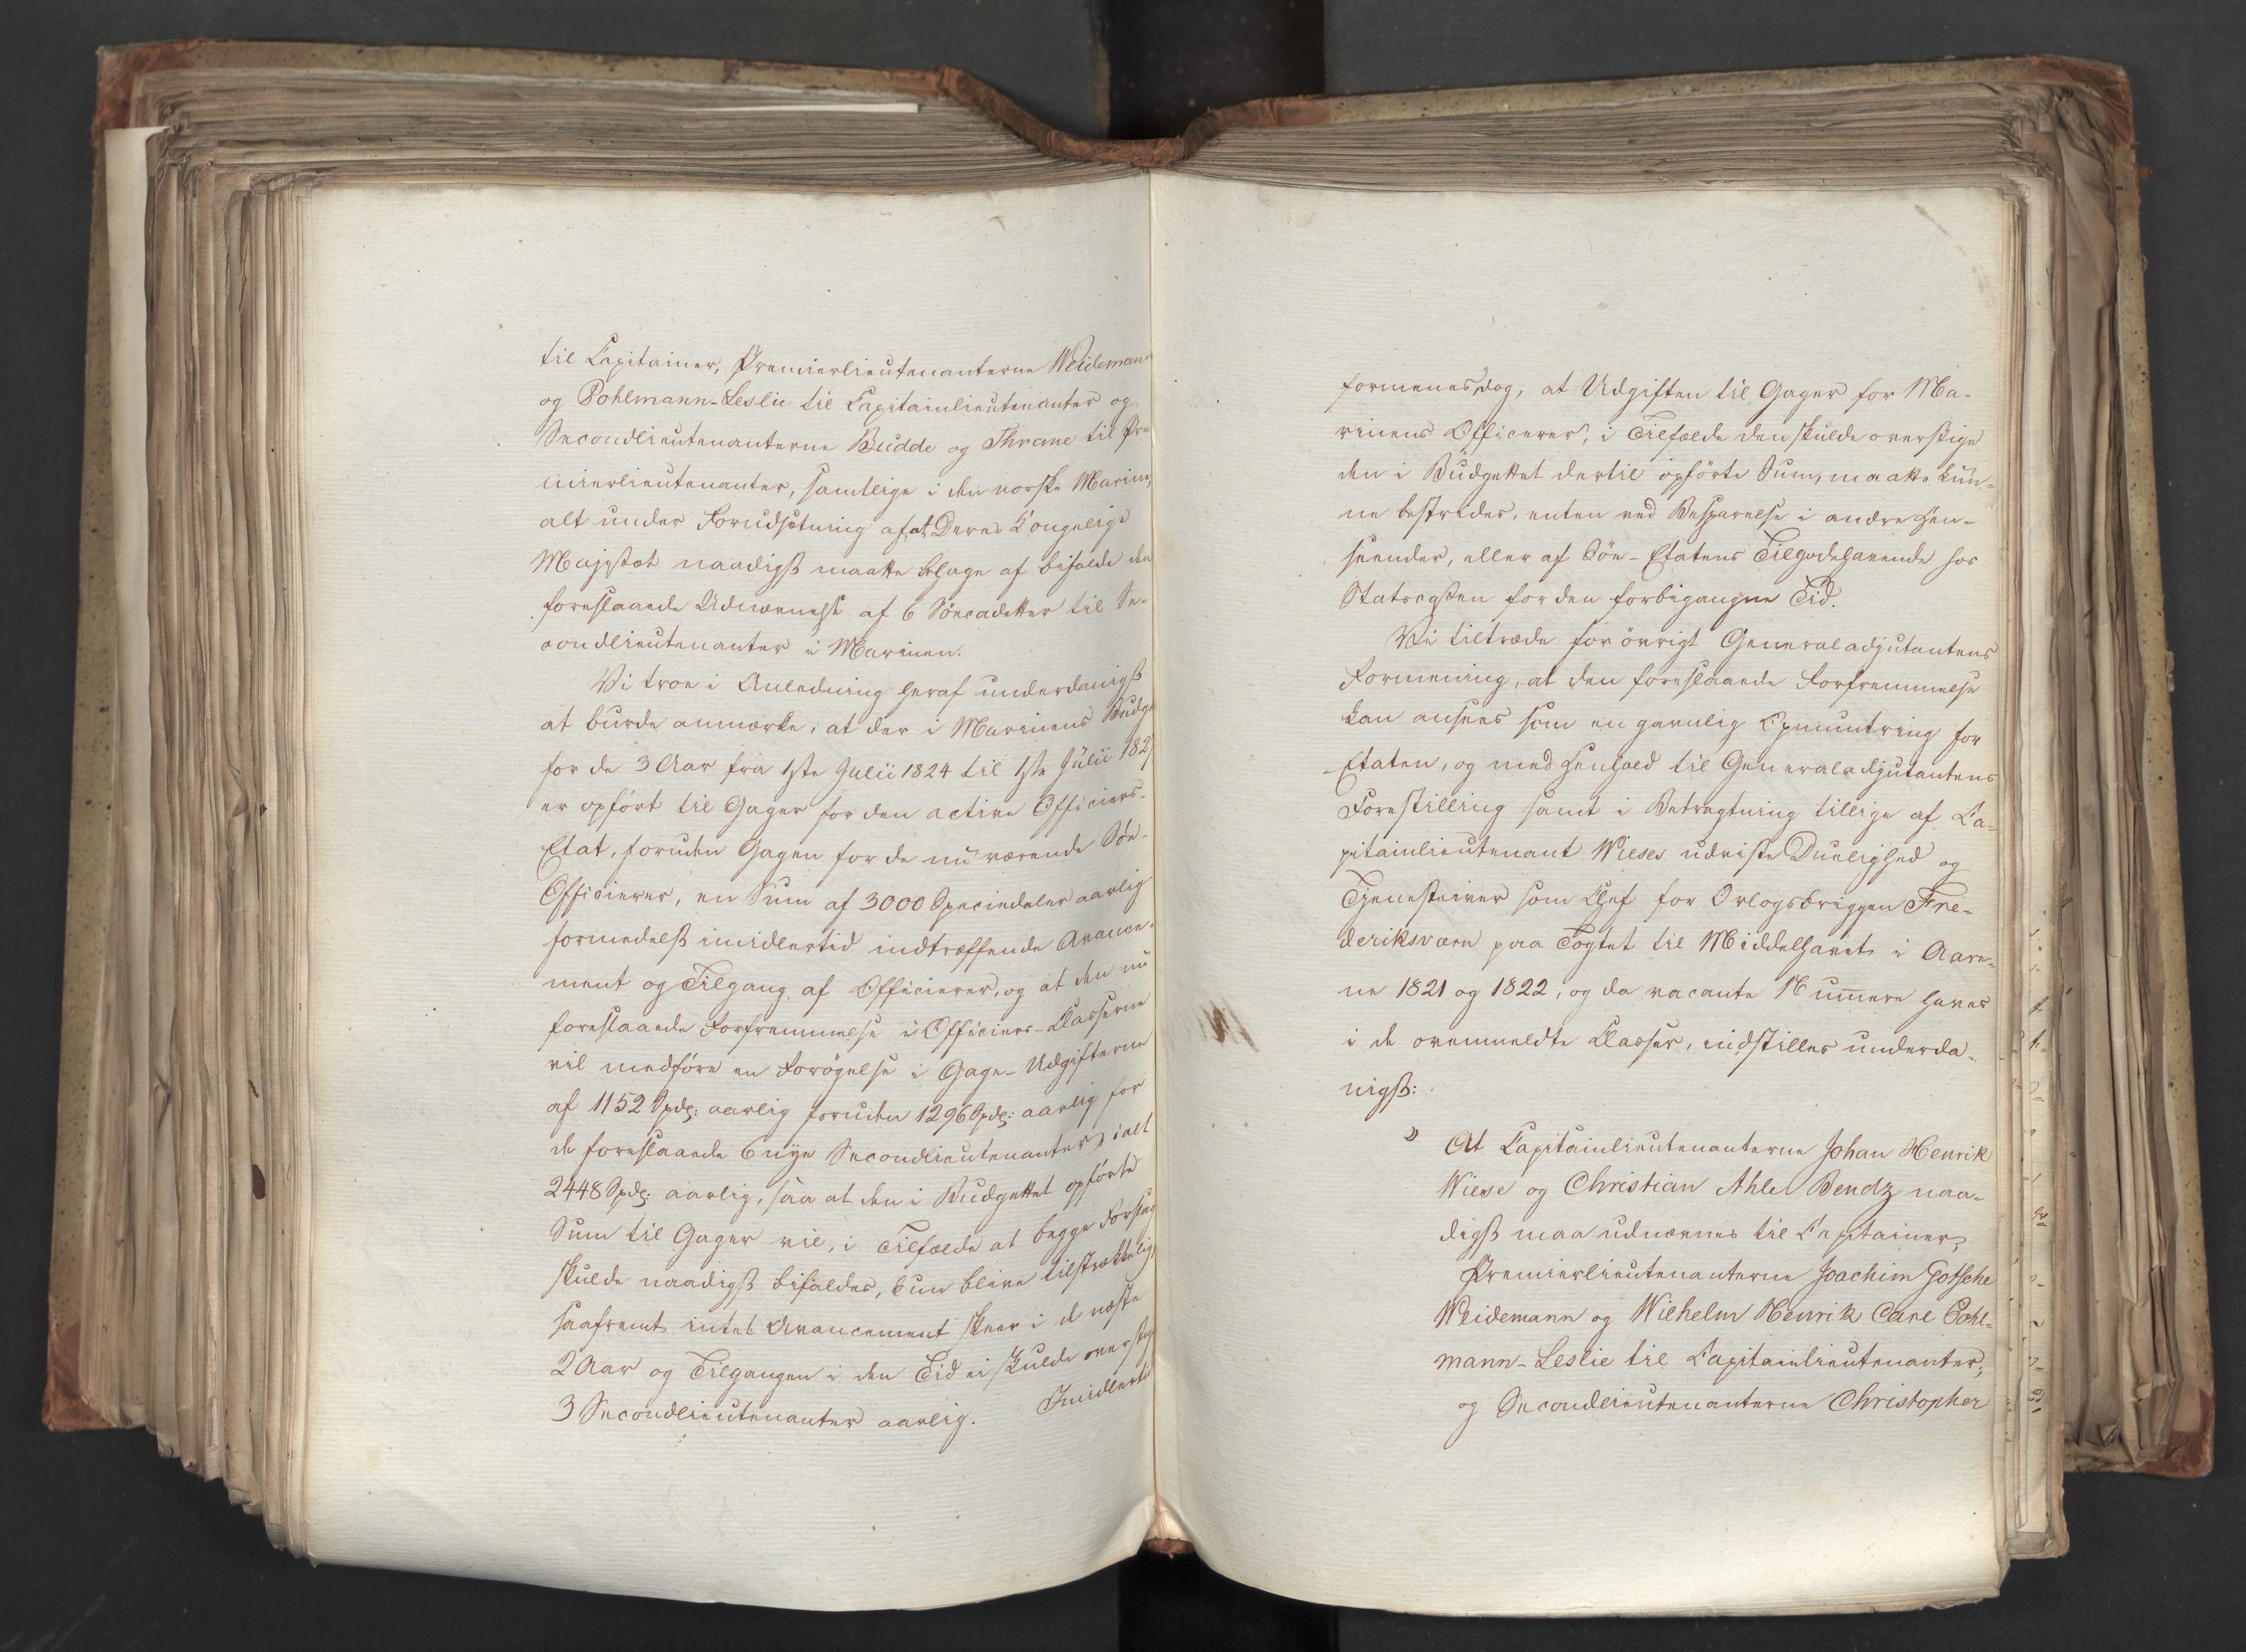 til Capitainer, Premierlieutenanterne Weidemann
og Pohlmann-Leslie til Capitainlieutenanter og
Secondlieutenanterne Budde og Thrane til Pre
mierlieutenanter, samtlige i den norske Marine,
alt under Forudsætning af at Deres Kongelige
Majestæt naadigst maatte behage at bifalde den
foreslaaede Udnævnelse af 6 Söecadetter til Se-
condlieutenanter i Marinen.
Vi troe i Anledning heraf underdanigst
at burde anmærke, at der i Marinens Budget
for de 3 Aar fra 1ste Julii 1824 til 1ste Julii 1827
er opfört til Gager for den active Officiers-
Etat, foruden Gagen for de nu værende Söe-
Officierer, en Sum af 3000 Speciedaler aarlig
formedelst imidlertid indtræffende Avance-
ment og Tilgang af Officierer, og at den nu
foreslaaede Forfremmelse i Officiers-Classerne
vil medföre en Forögelse i Gage-Udgifterne
af 1152 Spdlr: aarlig foruden 1296 Spdlr: aarlig for
de foreslaaede 6 nye Secondlieutenanter, ialt
2448 Spdlr: aarlig, saa at den i Budgettet opförte
Sum til Gager vil, i Tilfælde at begge Forslag
skulde naadigst bifaldes, kun blive tilstrækkelig,
saafremt intet Avancement skeer i de næste
2 Aar og Tilgangen i den Tid ei skulde overstige
3 Secondlieutenanter aarlig. Imidlertid
formenes dog, at Udgiften til Gager for Ma-
rinens Officerer, i Tilfælde den skulde overstige
den i Budgettet dertil opförte Sum, maatte kun-
ne bestrides, enten ved Besparelse i andre Hen-
seender, eller af Söe-Etatens Tilgodehavende hos
Statscassen for den forbigangne Tid.
Vi tiltræde for övrigt Generaladjutantens
Formening, at den foreslaaede Forfremmelse
kan ansees som en gavnlig Opmuntring for
Etaten, og med Henhold til Generaladjutantens
Forestilling samt i Betragtning tillige af Ca-
pitainlieutenant Wieses udviste Duelighed og
Tjenesteiver som Chef for Orlogsbriggen Fre-
deriksværn paa Togtet til Middelhavet i Aare-
ne 1821 og 1822, og da vacante Numere haves
i de ovenmeldte Classer, indstilles underda-
nigst:
At Capitainlieutenanterne Johan Henrik
Wiese og Christian Ahle Bendz naa-
digst maa udnævnes til Capitainer,
Premierlieutenanterne Joachim Gotsche
Weidemann og Wilhelm Henrik Carl Pohl-
mann-Leslie til Capitainlieutenanter,
og Secondlieutenanterne Christopher